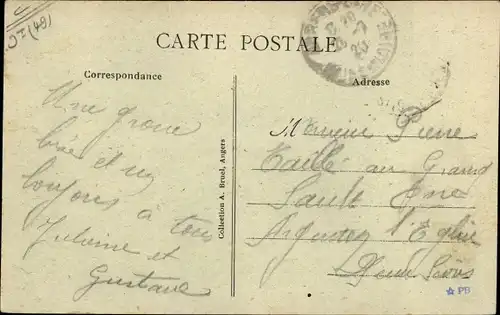 DI (49)
CARTE POSTALE
Correspondance
Adresse
Une grosse
bise et un
bonjour à tous
Julienne et
Gustave
Collection A. Bruel, Angers
Monsieur Pierre
Taillé au Grand
Sault Cne
Argenton l'Eglise
Deux Sèvres
PB